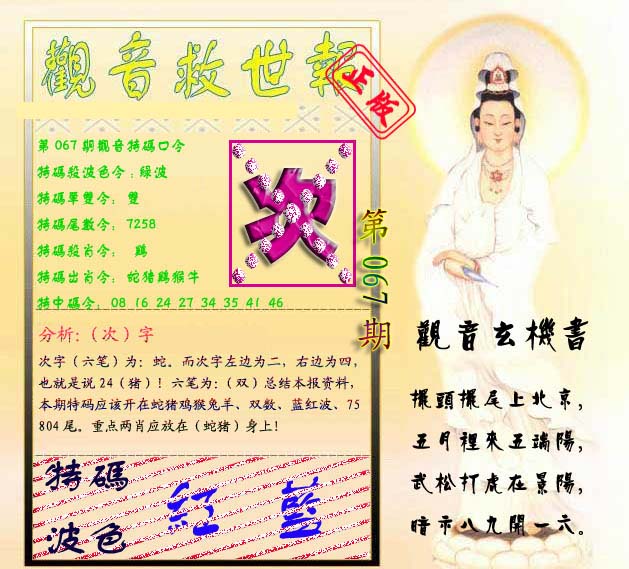 觀音救世報
正版
第067期觀音特碼口令
特碼殺波色令：綠波
特碼單雙令： 雙
特碼尾數令： 7258
特碼殺肖令： 鷄
特碼出肖令： 蛇猪鷄猴牛
特中碼令： 08 16 24 27 34 35 41 46
次
第067期
分析:（次）字
次字（六笔）为：蛇。而次字左边为二，右边为四，
也就是说24（猪）！六笔为:（双）总结本报资料，
本期特码应该开在蛇猪鸡猴兔羊、双数、蓝红波、75
804尾。重点两肖应放在（蛇猪）身上！
特碼
波色
紅 藍
觀音玄機書
擺頭擺尾上北京，
五月裡來五端陽，
武松打虎在景陽，
暗示八九開一六。